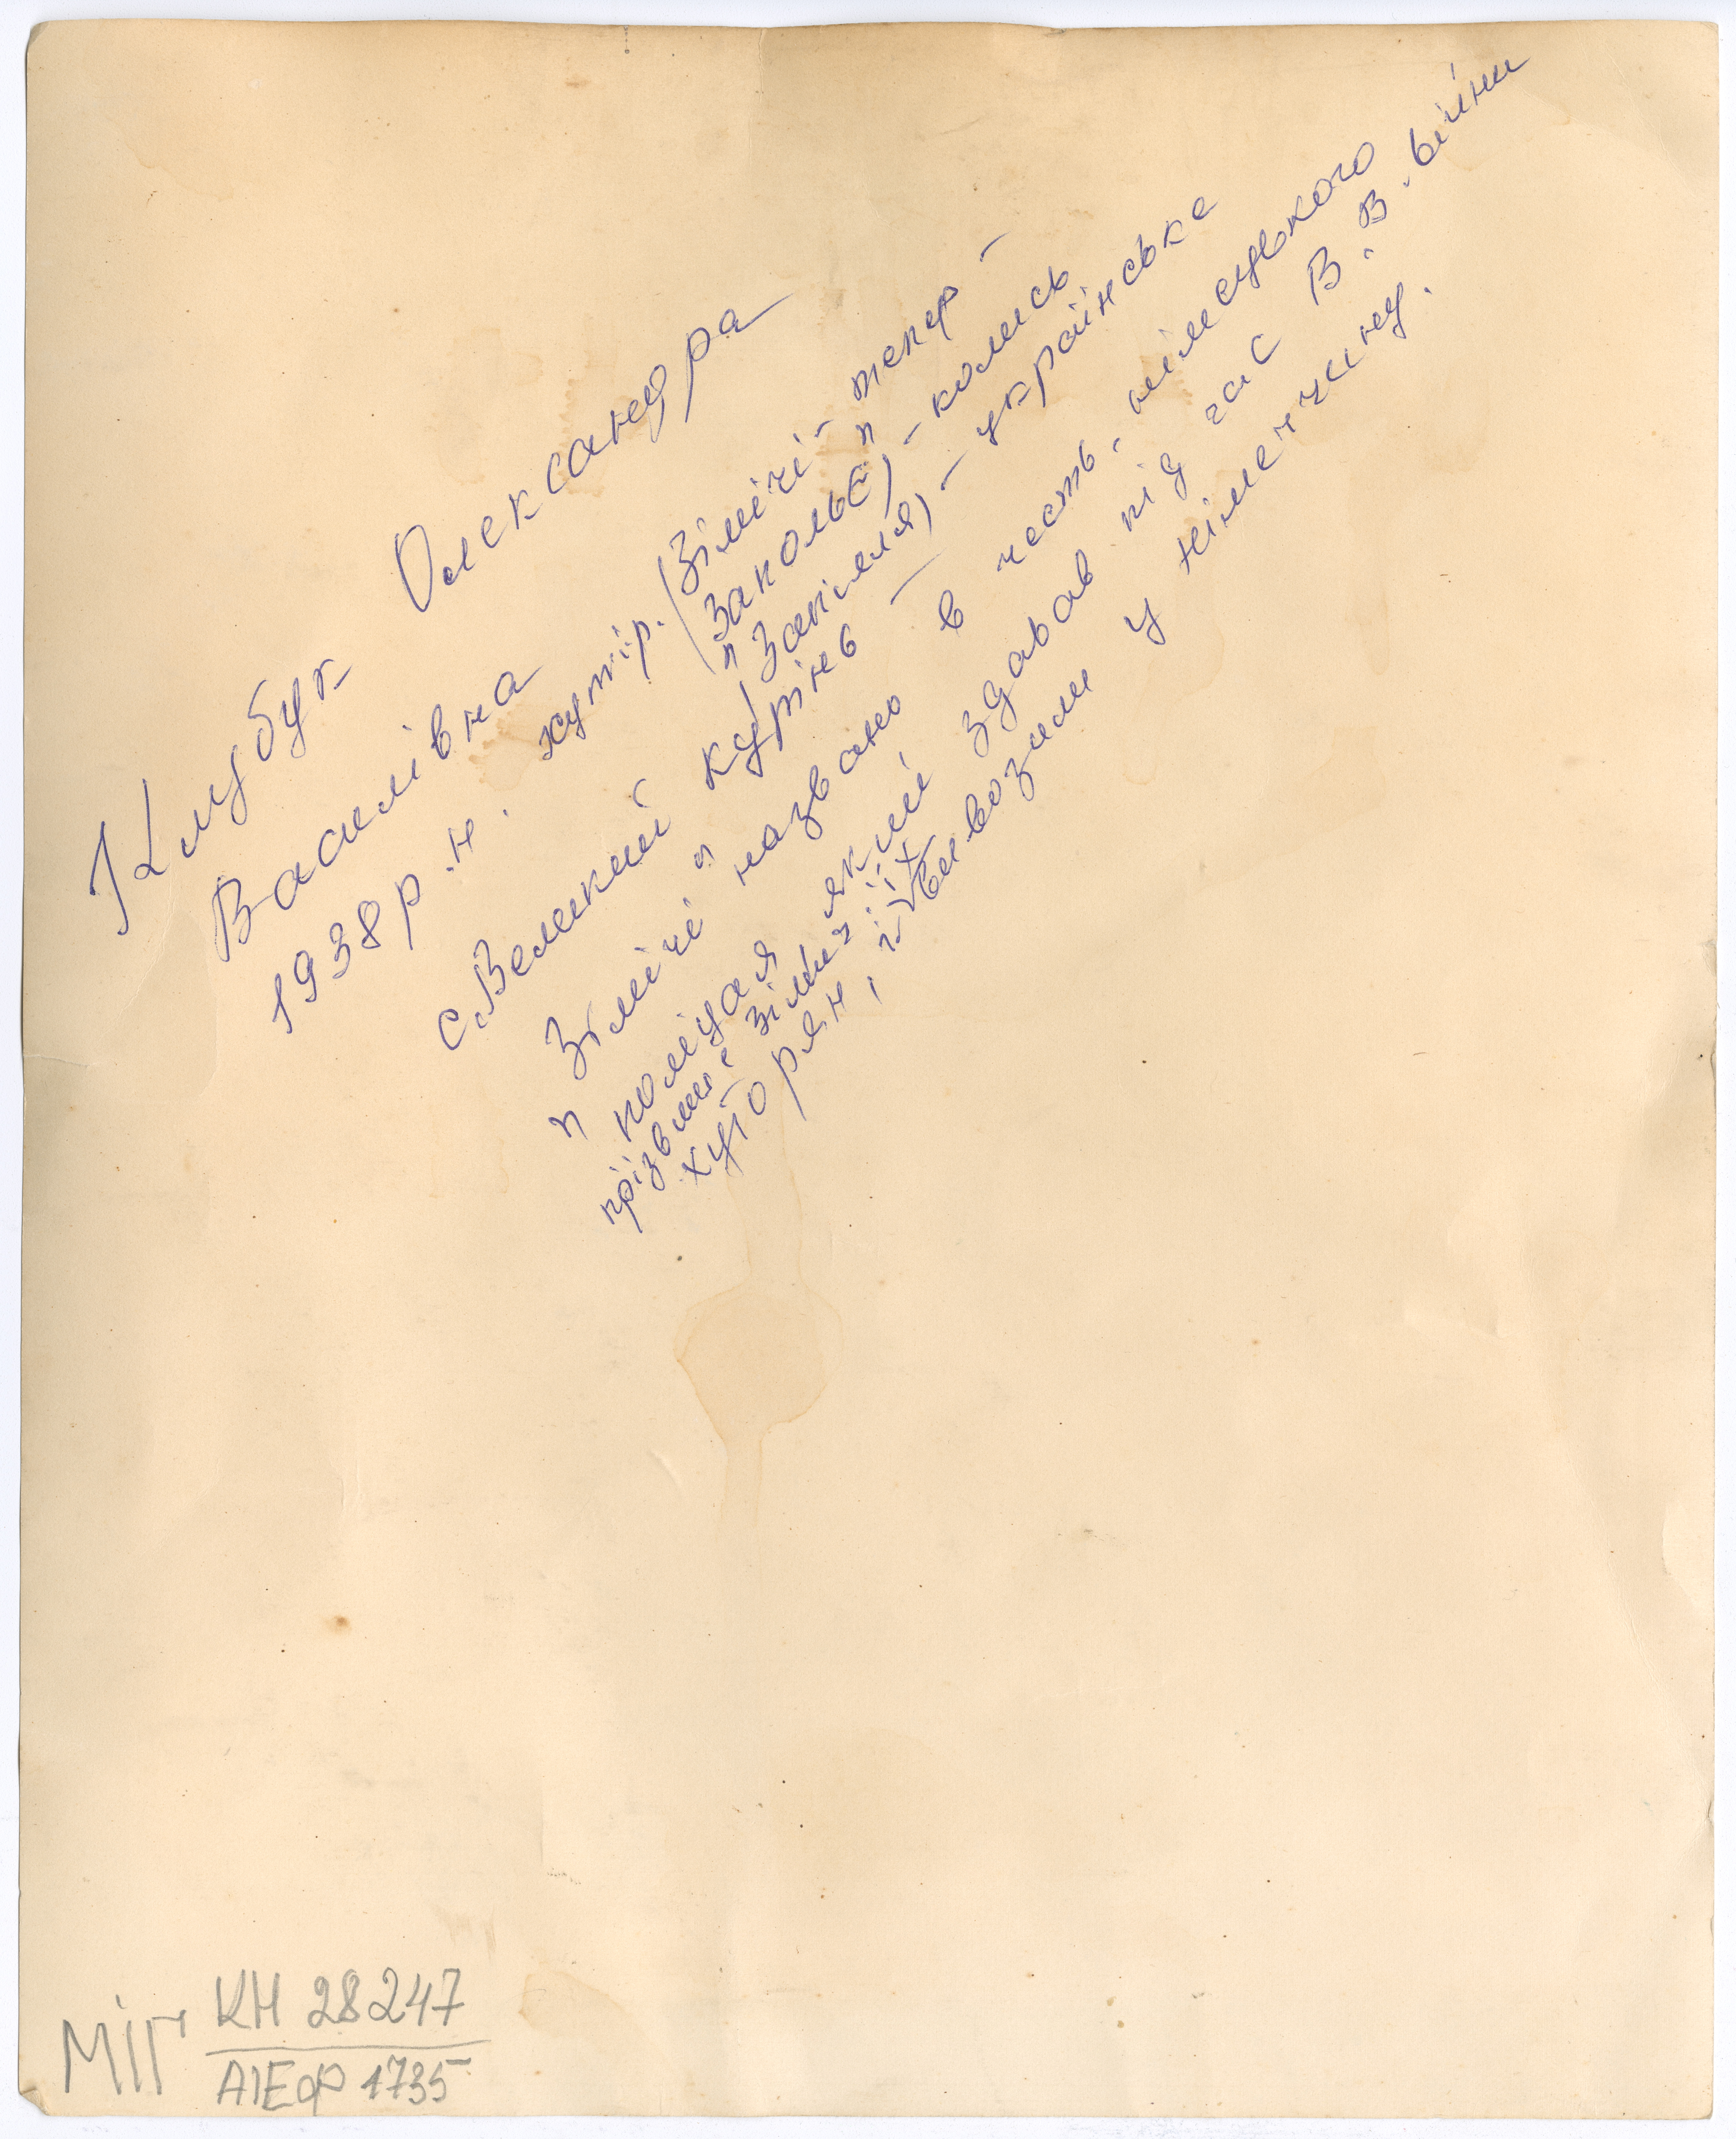 Клубук Олександра
Василівна
1938 р.н. хутір. (Зімічі - тепер -
"Закольє") - колись
"Запілля) - українське
с. Великий кутнів —
"Зімічі" названо в честь, німецького
поліцая який здавав під час В.В. війни
прізвище Зіміч їх
хуторян, і вивозили у Німеччину.
МІГ КН 28247
АІЕФ 1735